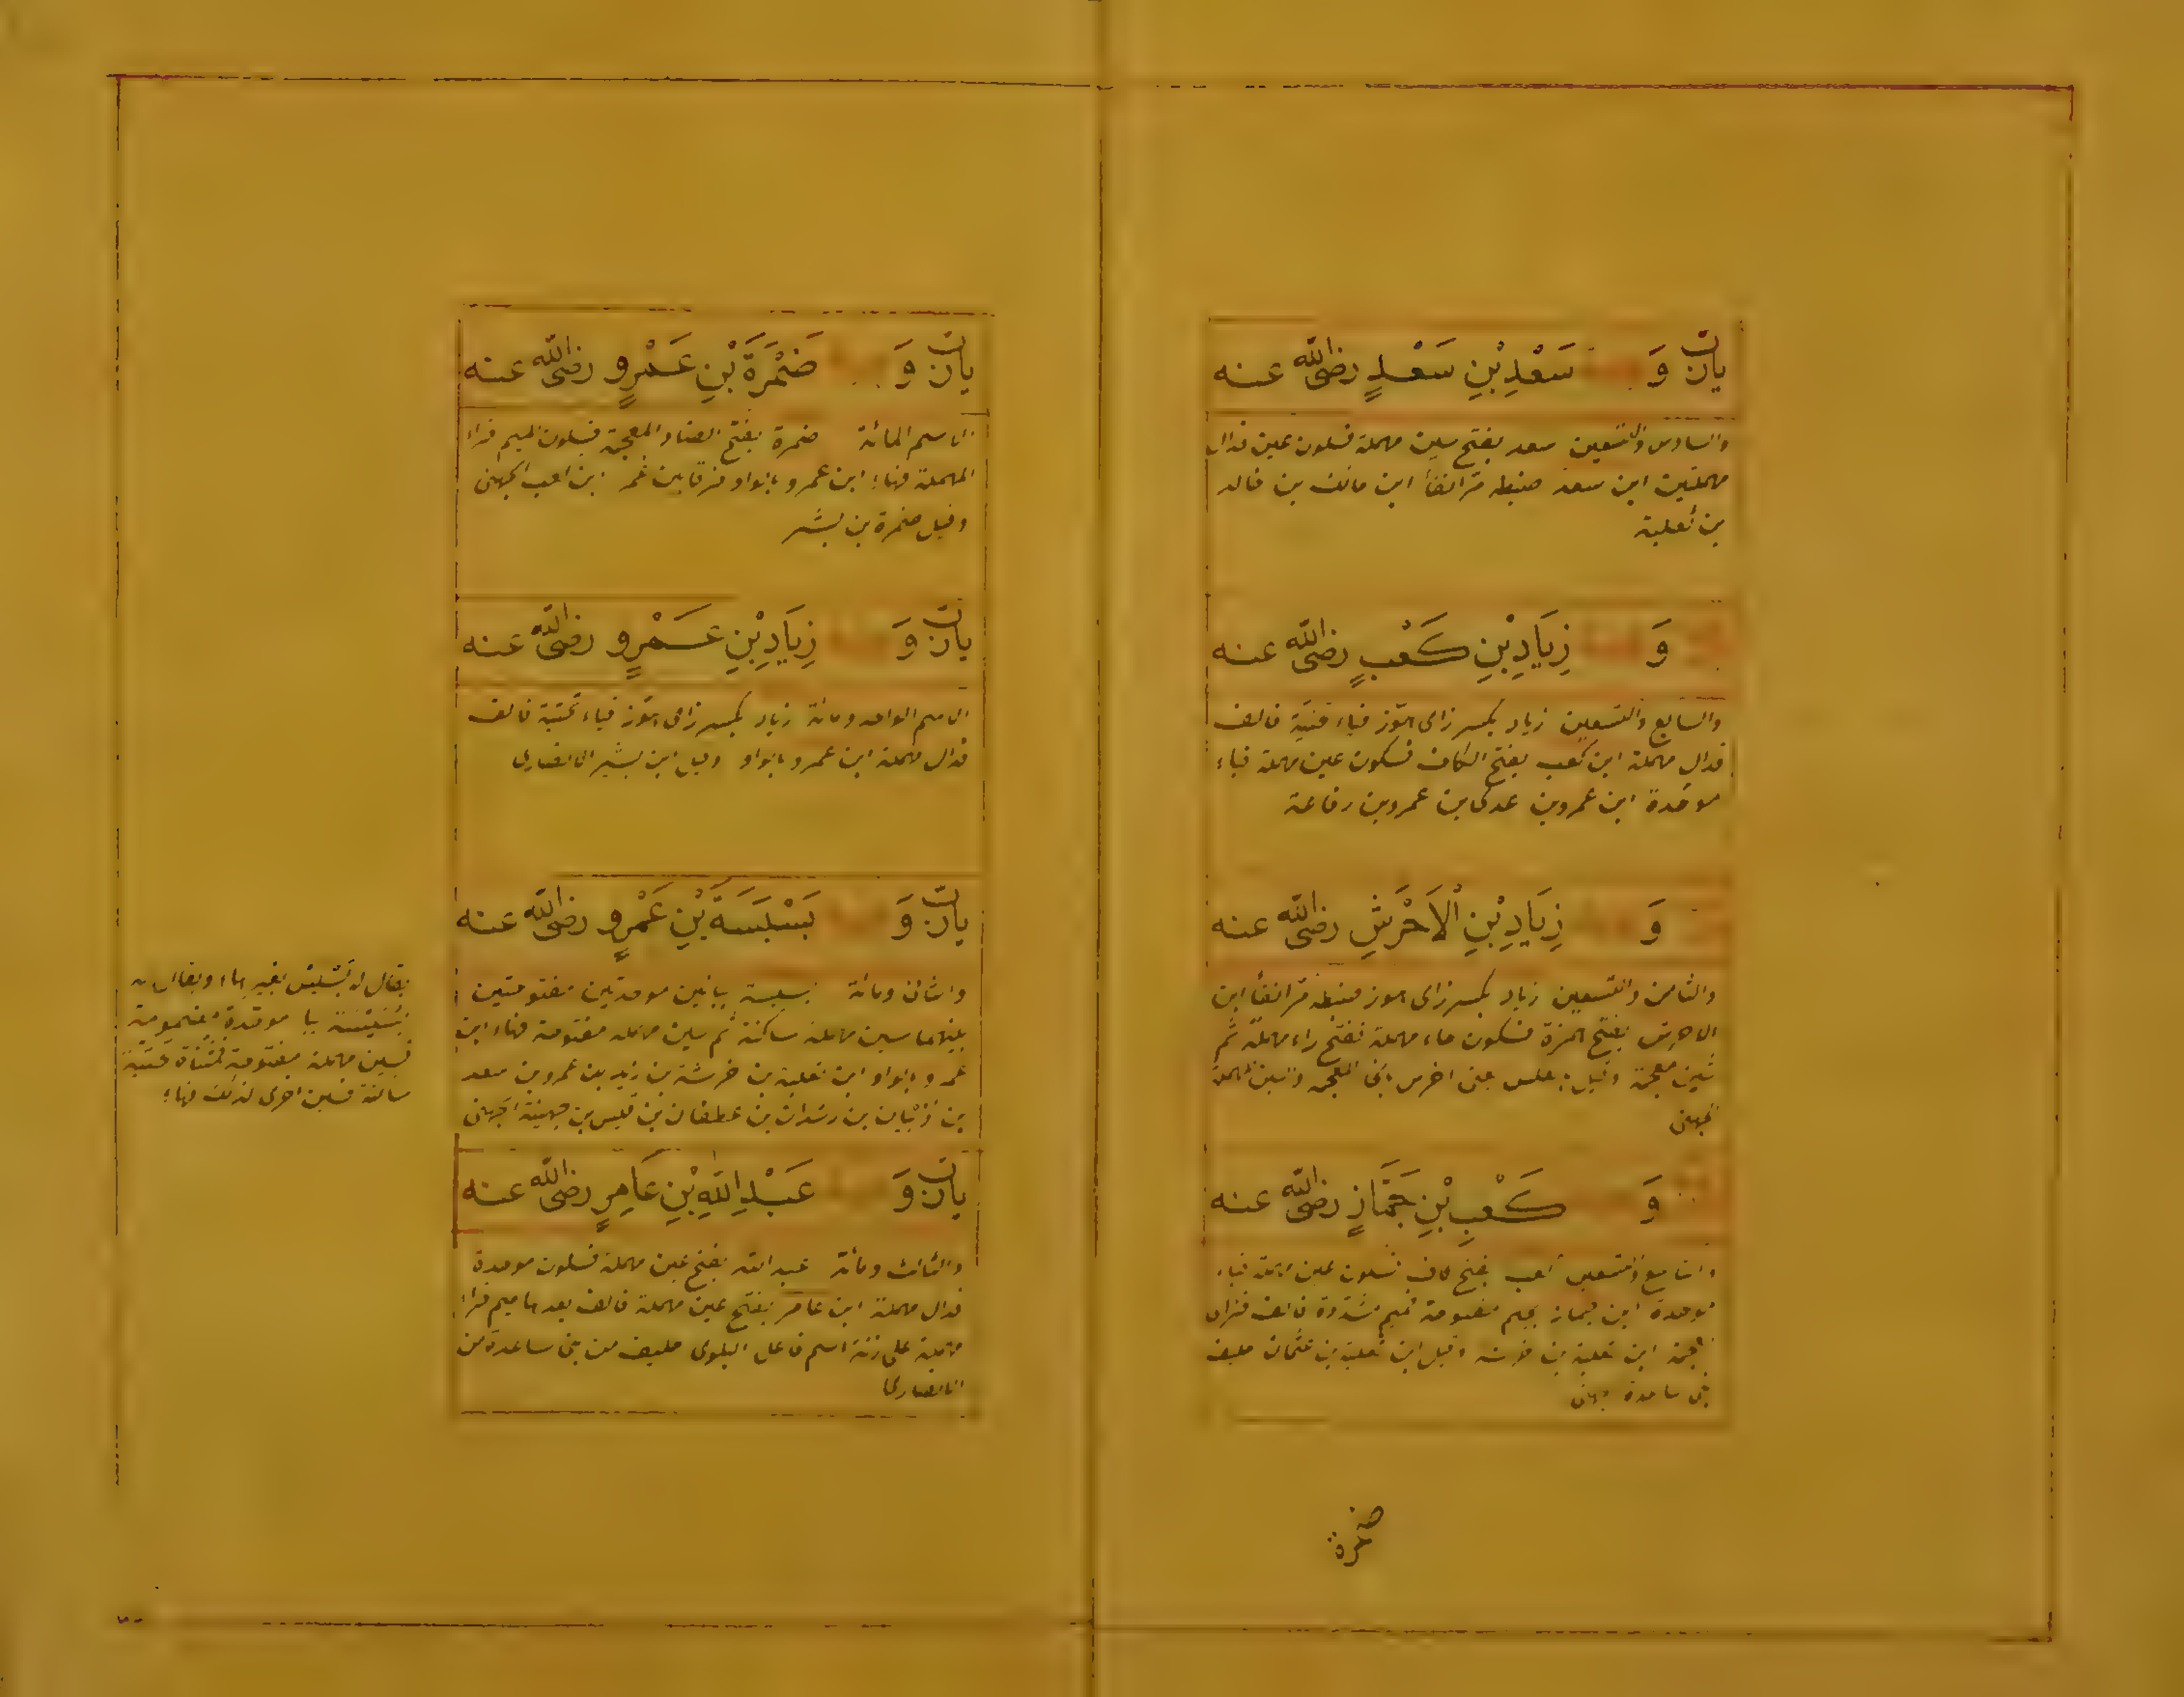 يارب وَ سَعْدِ بْنِ سَعْدٍ رضى الله عنه
والسادس والتسعين سعد بفتح سين مهملة فسكون عين فدال
مهملتين ابن سعد ضبطه مر انفا ابن مالك بن خالد
بن ثعلبة
وَ زِيَادِ بْنِ كَعْبٍ رضى الله عنه
والسابع والتسعين زياد بكسر زاى هوز فياء فالف
فدال مهملة ابن كعب بفتح الكاف فسكون عين مهملة فباء
موحدة ابن عمرو بن عدى بن عمرو بن رفاعة
وَ زِيَادِ بْنِ الْاَخْرَشِ رضى الله عنه
والثامن والتسعين زياد بكسر زاى هوز ضبطه مر انفا ابن
الاحرش بفتح الهمزة فسكون حاء مهملة ففتح راء مهملة ثم
شين معجمة وقيل
جهنى
وَ كَعْبِ بْنِ جَمَّازٍ رضى الله عنه
والتاسع والتسعين كعب بفتح كاف فسكون عين مهملة فباء
موحدة ابن جماز بجيم مفتوحة فميم مشددة فالف فزاى
ابن ثعلبة بن وقيل ابن ثعلبة بن عثمان حليف
بنى ساعدة جهنى
ضمرة
يارب وَ ضَمْرَةَ بْنِ عَمْرٍو رضى الله عنه
المائة ضمرة بفتح الضاد المعجمة فسكون الميم فراء
المهملة فهاء ابن عمرو بالواو فرقا بين عمر ابن كعب الجهنى
وقيل ضمرة بن بشر
يارب وَ زِيَادِ بْنِ عَمْرٍو رضى الله عنه
الاسم الواحد ومائة زياد بكسر زاى هوز فياء تحتية فالف
فدال مهملة ابن عمرو بالواو وقيل ابن بشر الانصارى
يارب وَ بَسْبَسَةَ بْنِ عَمْرٍو رضى الله عنه
والثانى ومائة بسبسة ببائين موحدتين مفتوحتين
بينهما سين مهملة ساكنة ثم سين مهملة مفتوحة فهاء ابن
عمرو بالواو ابن ثعلبة بن خرشة بن زيد بن عمرو بن سعد
بن ذبيان بن رشدان بن غطفان بن قيس بن جهينة الجهنى
يقال له بسبس بغير هاء ويقال له
بسيسة با موحدة مضمومة
فسين مهملة مفتوحة فمثناة تحتية
ساكنة فسين اخرى كذلك فهاء
يارب وَ عَبْدِ اللّٰهِ بْنِ عَامِرٍ رضى الله عنه
والثالث ومائة عبد الله بفتح عين مهملة فسكون موحدة
فدال مهملة ابن عامر بفتح عين مهملة فالف بعدها ميم فراء
مهملة على زنة اسم فاعل البلوى حليف من بنى ساعدة من
الانصار